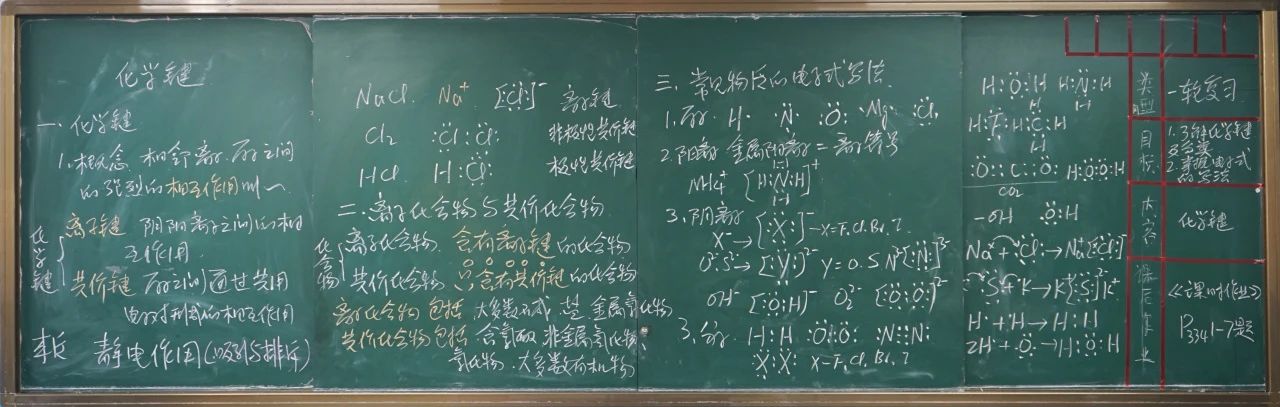 化学键
一、化学键
1.概念 相邻离子、原子之间
的强烈的相互作用叫～
化学键
离子键 阴阳离子之间的相
互作用
共价键 原子之间通过共用
电子对形成的相互作用
本质 静电作用(吸引与排斥)
NaCl Na⁺ [:Cl:]⁻ 离子键
Cl₂ :Cl:Cl: 非极性共价键
HCl H:Cl: 极性共价键
二、离子化合物与共价化合物
化合物
离子化合物 含有离子键的化合物
共价化合物 只含有共价键的化合物
离子化合物 包括 大多数 碱 盐 金属氧化物
共价化合物 包括 含氧酸 非金属氧化物
氢化物、大多数有机物
三、常见物质的电子式写法
1.原子 H· ·N· :O: ·Mg· :Cl:
2.阳离子 金属阳离子=离子符号
NH₄⁺ [H:N:H]⁺
3.阴离子
X⁻→[:X:]⁻ X=F、Cl、Br、I
O²⁻S²⁻→[:Y:]²⁻ Y=O、S N³⁻[:N:]³⁻
OH⁻ [:O:H]⁻ O₂²⁻ [:O:O:]²⁻
3.分子 H:H :O::O: :N::N:
:X:X: X=F、Cl、Br、I
H:O:H H:N:H
H
H:F: H:C:H
H
:O::C::O: H:O:O:H
CO₂
-OH ·O:H
Na·+·Cl:→Na⁺[:Cl:]⁻
·S·+K·→K⁺[:S:]²⁻K⁺
H·+H·→H:H
2H·+·O·→H:O:H
类型 一轮复习
目标 1.了解化学键
分类
2.掌握电子式
的写法
内容 化学键
课后作业 《课时作业》
P334 1-7题